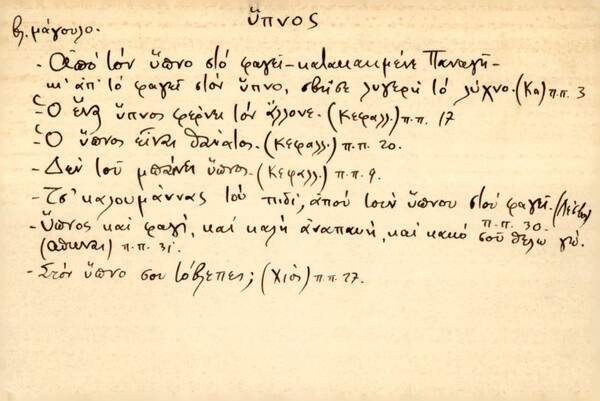 ὕπνος
βλ. μάγουλο.
- Ἀπό τόν ὕπνο στό φαγεῖ - κατακαημένε Παναγῆ -
κι ἀπ' τό φαγεῖ στόν ὕπνο, σβῆσε λυγερή τό λύχνο. (Κα) π.π. 3
- Ὁ ἕνας ὕπνος φέρνει τόν ἄλλονε. (Κεφαλλ.) π.π. 17
- Ὁ ὕπνος εἶναι θάνατος. (Κεφαλλ.) π.π. 20.
- Δέν τοῦ μπαίνει ὕπνος. (Κεφαλλ.) π.π. 9.
- Τσ' καλουμάννας τού πιδί, ἀπού τουν ὕπνου στού φαγί. π.π. 30.
- Ὕπνος καί φαγί, καί καλή ἀναπαυή, καί κακό σοῦ θέλω γώ.
(Αθῆναι) π.π. 31.
- Στόν ὕπνο σου τό βλεπες; (Χίος) π.π. 27.